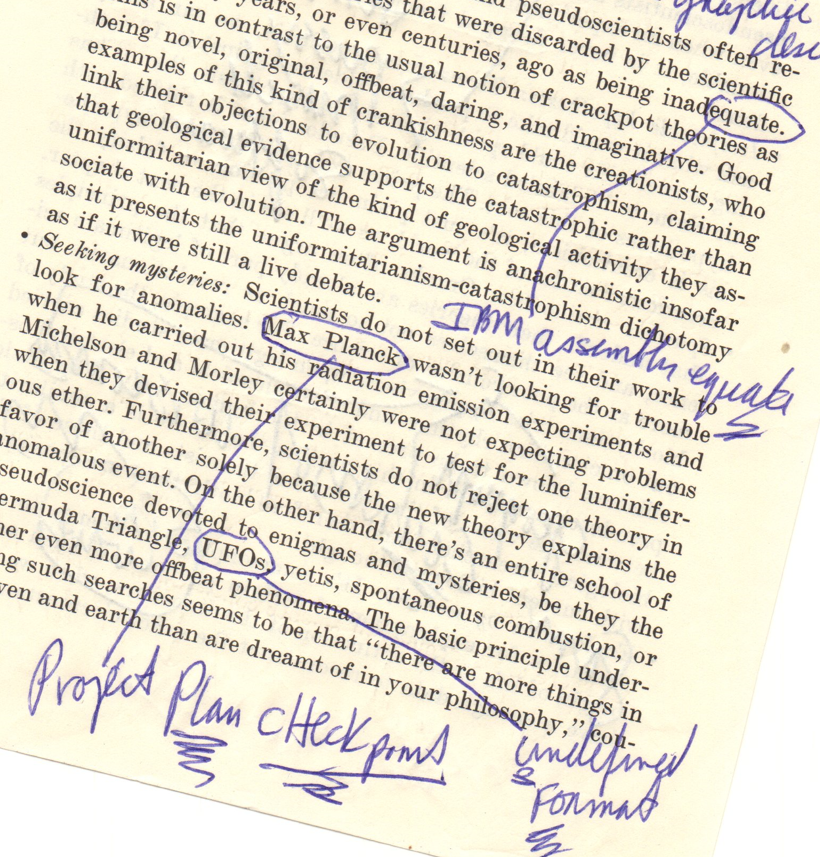 pseudoscientists often re-
years, or even centuries, ago as being inadequate.
is in contrast to the usual notion of crackpot theories as
being novel, original, offbeat, daring, and imaginative. Good
examples of this kind of crankishness are the creationists, who
link their objections to evolution to catastrophism, claiming
that geological evidence supports the catastrophic rather than
uniformitarian view of the kind of geological activity they as-
sociate with evolution. The argument is anachronistic insofar
as it presents the uniformitarianism-catastrophism dichotomy
as if it were still a live debate.
• Seeking mysteries: Scientists do not set out in their work to
look for anomalies. Max Planck wasn't looking for trouble
when he carried out his radiation emission experiments and
Michelson and Morley certainly were not expecting problems
when they devised their experiment to test for the luminifer-
ous ether. Furthermore, scientists do not reject one theory in
favor of another solely because the new theory explains the
anomalous event. On the other hand, there's an entire school of
seudoscience devoted to enigmas and mysteries, be they the
ermuda Triangle, UFOs, yetis, spontaneous combustion, or
her even more offbeat phenomena. The basic principle under-
ng such searches seems to be that "there are more things in
ven and earth than are dreamt of in your philosophy," cou-
IBM assembly equate
Project Plan CHeckpoint
undefined
Format